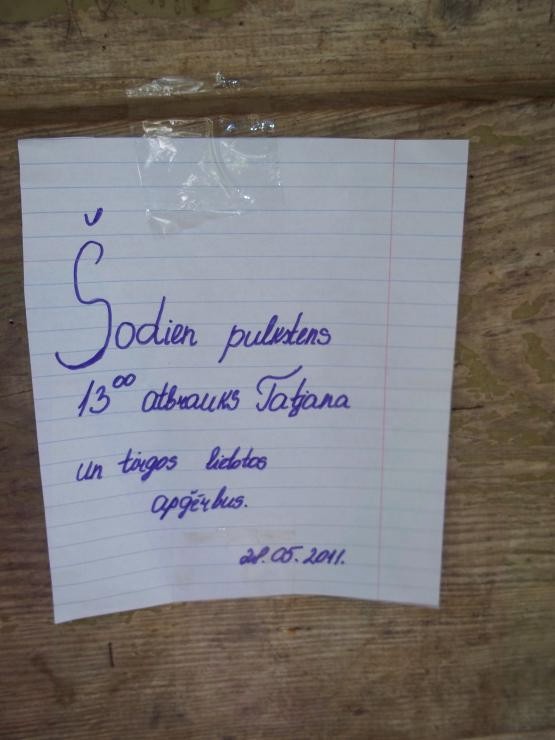 Šodien pulkstens
13⁰⁰ atbrauks Tatjana
un tirgos lietotos
apģērbus.
28.05.2011.